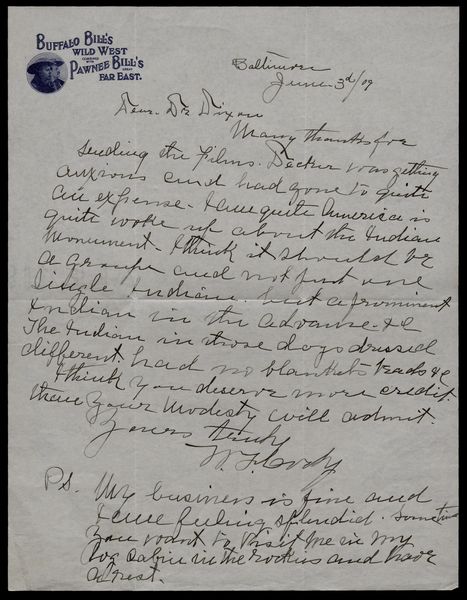 BUFFALO BILL'S
WILD WEST
COMBINED WITH
PAWNEE BILL'S
GREAT
FAR EAST.
Baltimore
June 3d/09
Dear Dr Dixon
Many thanks for
sending the films. Decker was getting
anxious and had gone to quite
an expense. I am quite America is
quite woke up about the Indian
Monument. I think it should be
a group and not just one
Single Indian. but a prominent
Indian in the advance. &c
The Indian in those days dressed
different. had no blankets beads &c
I think you deserve more credit
than your Modesty will admit.
Yours truly
W. F. Cody
P.S. My business is fine and
I am feeling splendid. Sometime
You want to visit me in my
Log cabin in the rockies and have
a rest.